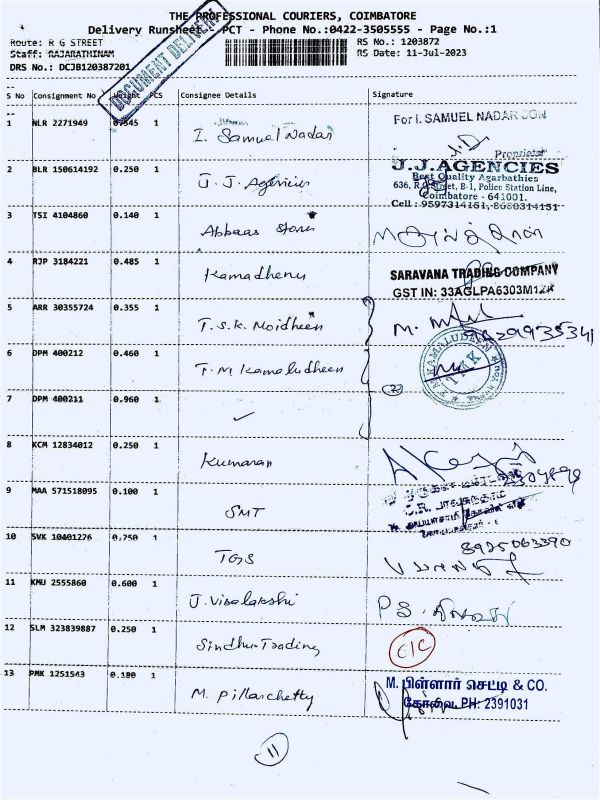 THE PROFESSIONAL COURIERS, COIMBATORE
Delivery Runsheet - PCT - Phone No.:0422-3505555 - Page No.:1
Route: R G STREET
RS No.: 1203872
Staff: RAJARATHINAM
RS Date: 11-Jul-2023
DRS No.: DCJB120387201
DOCUMENT DELIVERY
S No Consignment No Weight PCS Consignee Details Signature
1 NLR 2271949 0.345 1 I. Samuel Nadar
For I. SAMUEL NADAR SON
Proprietor
2 BLR 150614192 0.250 1 J. J. Agencies
J.J.AGENCIES
Best Quality Agarbathies
636, R.G. Street, B-1, Police Station Line,
Coimbatore - 641001.
Cell : 9597314151, 8668314151
3 TSI 4104860 0.140 1 Abbaas Stores
4 RJP 3184221 0.485 1 Kamadhenu
SARAVANA TRADING COMPANY
GST IN: 33AGLPA6303M1ZK
5 ARR 30355724 0.355 1 T.S.K. Moidheen
M.
9629935341
6 DPM 400212 0.460 1 T.M Kamaludheen
TMK
2
7 DPM 400211 0.960 1 ✓
8 KCM 12834012 0.250 1 Kumaran
9 MAA 571518095 0.100 1 SMT
10 SVK 10401226 0.250 1 TGS
8925063390
11 KMU 2555860 0.600 1 J. Visalakshi
P S.
12 SLM 323839887 0.250 1 Sindhu Trading
C/C
13 PMK 1251543 0.180 1 M. Pillarchetty
M. பிள்ளார் செட்டி & CO.
கோவை. PH: 2391031
11